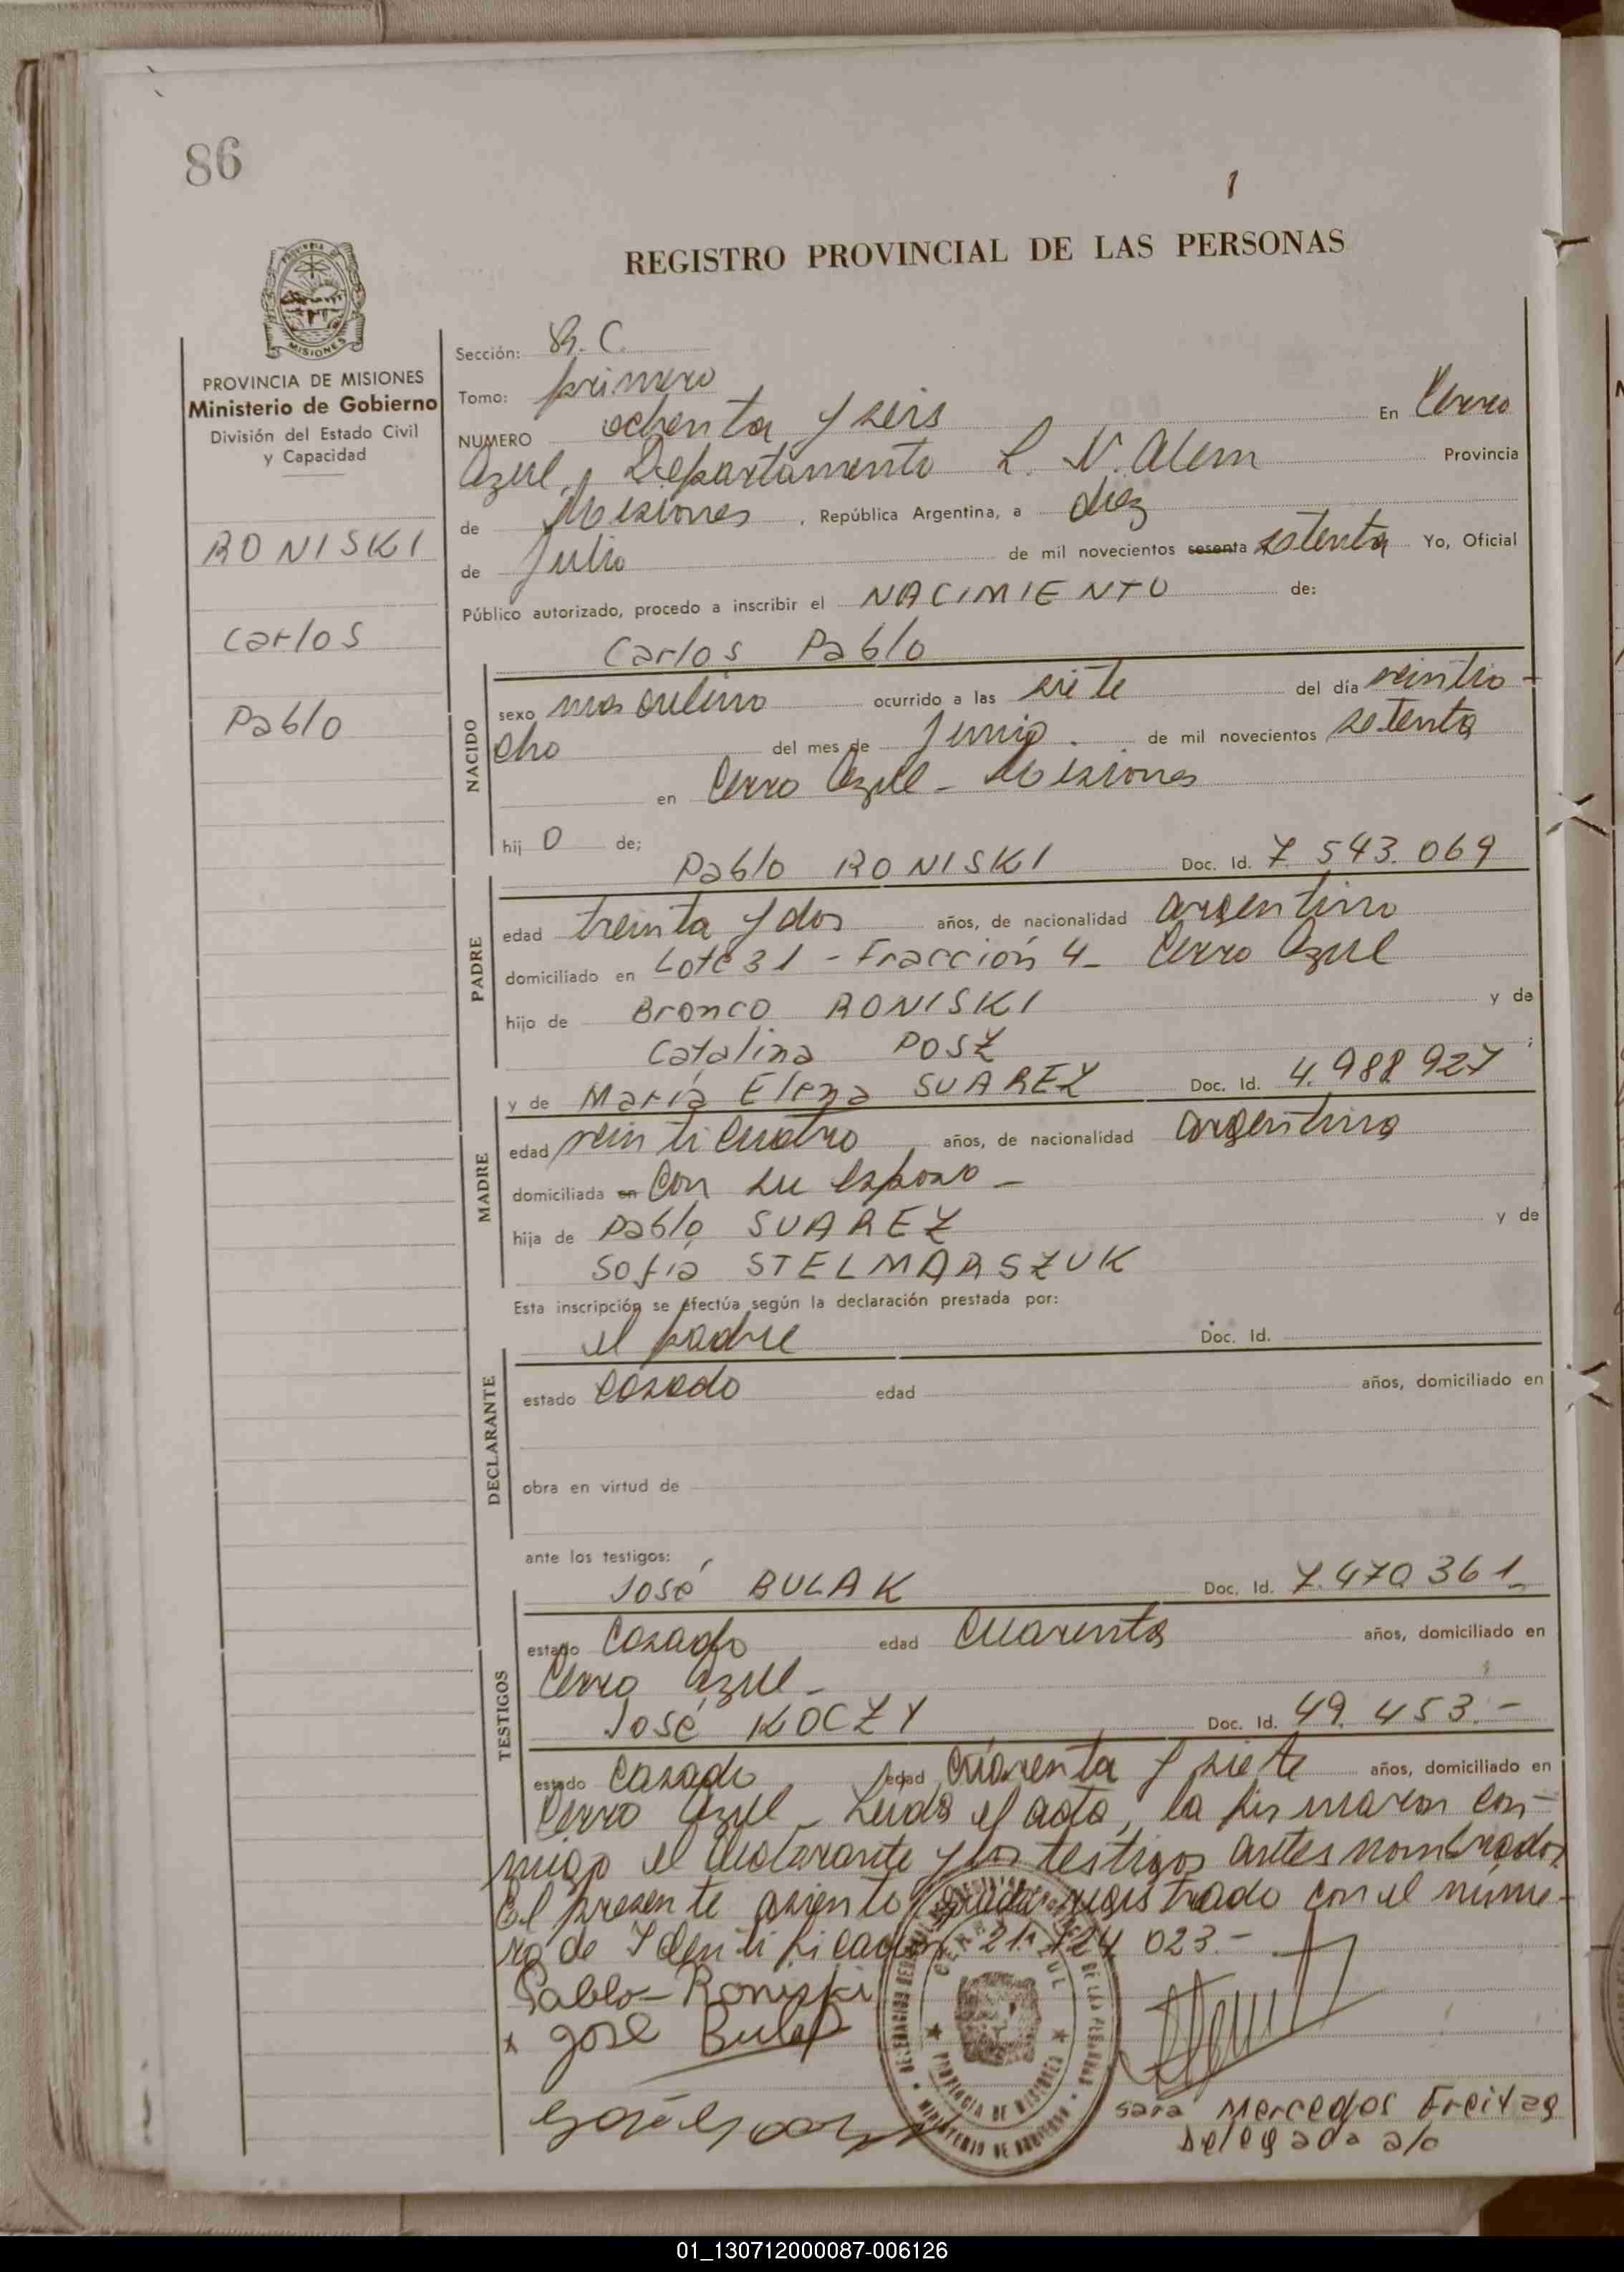 86
1
REGISTRO PROVINCIAL DE LAS PERSONAS
PROVINCIA DE MISIONES
Ministerio de Gobierno
División del Estado Civil
y Capacidad
RONISKI
Carlos
Pablo
Sección: C.
Tomo: primero
NUMERO ochenta y seis En Cerro
Azul, Departamento L. N. Alem Provincia
de Misiones, República Argentina, a diez
de Julio de mil novecientos sesenta setenta Yo, Oficial
Público autorizado, procedo a inscribir el NACIMIENTO de:
Carlos Pablo
NACIDO
sexo masculino ocurrido a las siete del día veintio-
cho del mes de Junio. de mil novecientos setenta
en Cerro Azul - Misiones
hij o de:
Pablo RONISKI Doc. Id. 7.543.069
PADRE
edad treinta y dos años, de nacionalidad argentino
domiciliado en Lote 31 - Fracción 4 - Cerro Azul
hijo de Bronco RONISKI y de
Catalina POSZ ;
y de María Elena SUAREZ Doc. Id. 4.988 927
MADRE
edad veinticuatro años, de nacionalidad argentina
domiciliada en con su esposo -
hija de Pablo SUAREZ y de
Sofía STELMARSZUK
Esta inscripción se efectúa según la declaración prestada por:
el padre Doc. Id.
DECLARANTE
estado casado edad años, domiciliado en
obra en virtud de
ante los testigos:
José BULAK Doc. Id. 7.470.361_
TESTIGOS
estado casado edad cuarenta años, domiciliado en
Cerro Azul -
José KOCZY Doc. Id. 49.453.-
estado casado edad cuarenta y siete años, domiciliado en
Cerro Azul - Leida el acta, la firmaron con-
migo el declarante y los testigos antes nombrados.
El presente asiento queda registrado con el núme-
ro de Identificación 21.124 023.-
Pablo - Roniski
x José Bulak
CERRO AZUL
PROVINCIA DE MISIONES
MINISTERIO DE GOBIERNO
Sara Mercedes Freitag
Delegada a/c
01_130712000087-006126